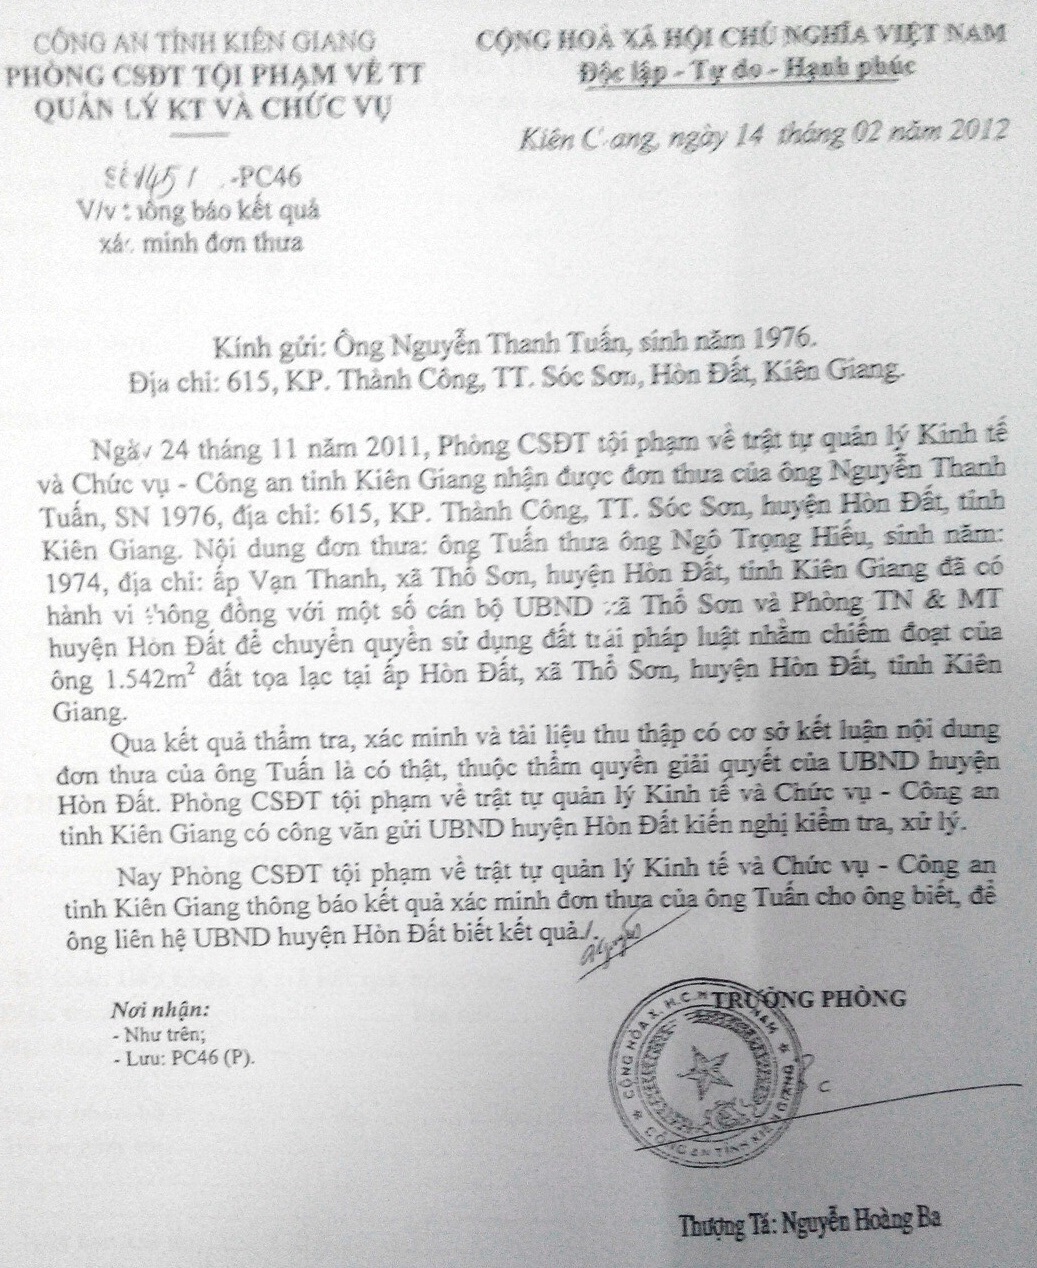 CÔNG AN TỈNH KIÊN GIANG
PHÒNG CSĐT TỘI PHẠM VỀ TT
QUẢN LÝ KT VÀ CHỨC VỤ
CỘNG HOÀ XÃ HỘI CHỦ NGHĨA VIỆT NAM
Độc lập - Tự do - Hạnh phúc
Kiên ang, ngày 14 tháng 02 năm 2012
-PC46
V/v báo kết quả
minh đơn thưa
Kính gửi: Ông Nguyễn Thanh Tuấn, sinh năm 1976.
Địa chỉ: 615, KP. Thành Công, TT. Sóc Sơn, Hòn Đất, Kiên Giang.
Ngày 24 tháng 11 năm 2011, Phòng CSĐT tội phạm về trật tự quản lý Kinh tế
và Chức vụ - Công an tỉnh Kiên Giang nhận được đơn thưa của ông Nguyễn Thanh
Tuấn, SN 1976, địa chỉ: 615, KP. Thành Công, TT. Sóc Sơn, huyện Hòn Đất, tỉnh
Kiên Giang. Nội dung đơn thưa: ông Tuấn thưa ông Ngô Trọng Hiếu, sinh năm:
1974, địa chỉ: ấp Vạn Thanh, xã Thổ Sơn, huyện Hòn Đất, tỉnh Kiên Giang đã có
hành vi thông đồng với một số cán bộ UBND xã Thổ Sơn và Phòng TN & MT
huyện Hòn Đất để chuyển quyền sử dụng đất trái pháp luật nhằm chiếm đoạt của
ông 1.542m² đất tọa lạc tại ấp Hòn Đất, xã Thổ Sơn, huyện Hòn Đất, tỉnh Kiên
Giang.
Qua kết quả thẩm tra, xác minh và tài liệu thu thập có cơ sở kết luận nội dung
đơn thưa của ông Tuấn là có thật, thuộc thẩm quyền giải quyết của UBND huyện
Hòn Đất. Phòng CSĐT tội phạm về trật tự quản lý Kinh tế và Chức vụ - Công an
tỉnh Kiên Giang có công văn gửi UBND huyện Hòn Đất kiến nghị kiểm tra, xử lý.
Nay Phòng CSĐT tội phạm về trật tự quản lý Kinh tế và Chức vụ - Công an
tỉnh Kiên Giang thông báo kết quả xác minh đơn thưa của ông Tuấn cho ông biết, để
ông liên hệ UBND huyện Hòn Đất biết kết quả./.
Nơi nhận:
- Như trên;
- Lưu: PC46 (P).
TRƯỞNG PHÒNG
CỘNG HÒA X.H.C.N NAM
CÔNG AN TỈNH KIÊN GIANG
Thượng Tá: Nguyễn Hoàng Ba